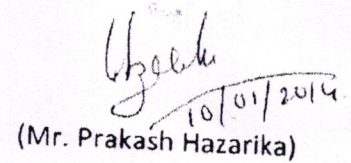 10/01/2014
(Mr. Prakash Hazarika)